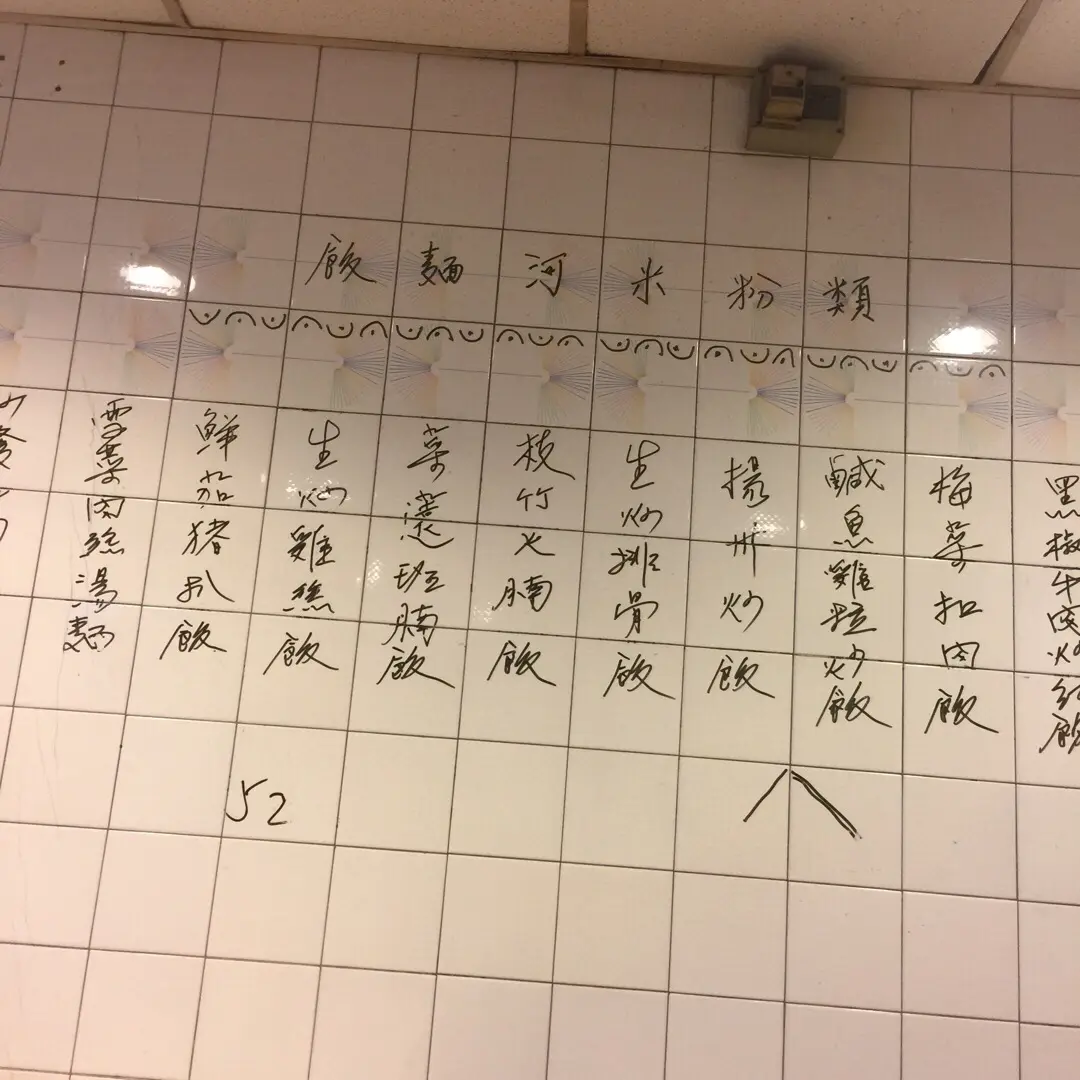 飯麵河米粉類
黑椒牛肉炒飯
梅菜扣肉飯
鹹魚雞粒炒飯
揚州炒飯
生炒排骨飯
枝竹火腩飯
菜薳班腩飯
生炒雞絲飯
鮮茄豬扒飯
雪菜肉絲湯麵
52